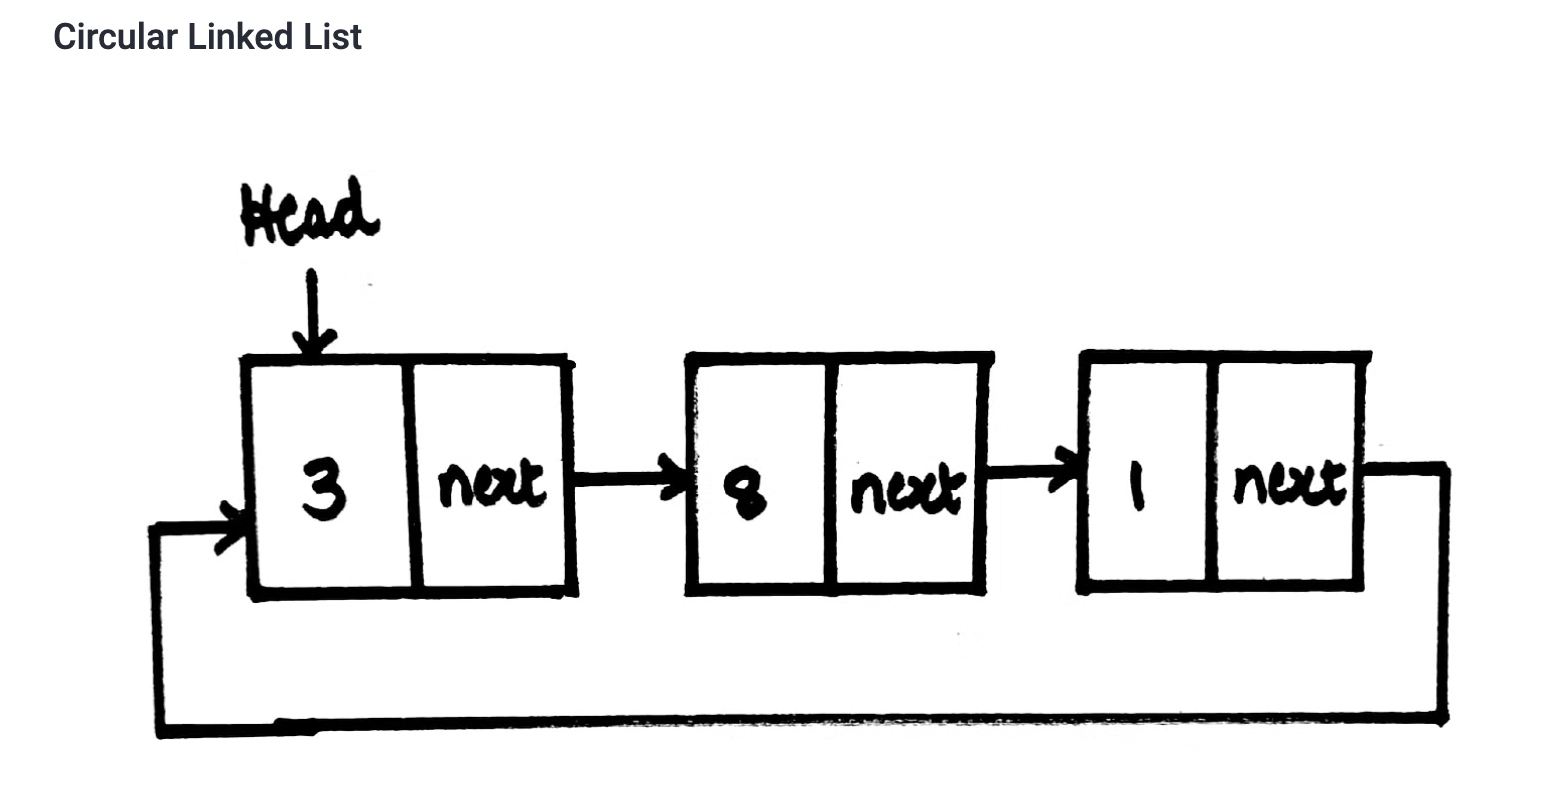 Circular Linked List
Head
3 next 8 next 1 next